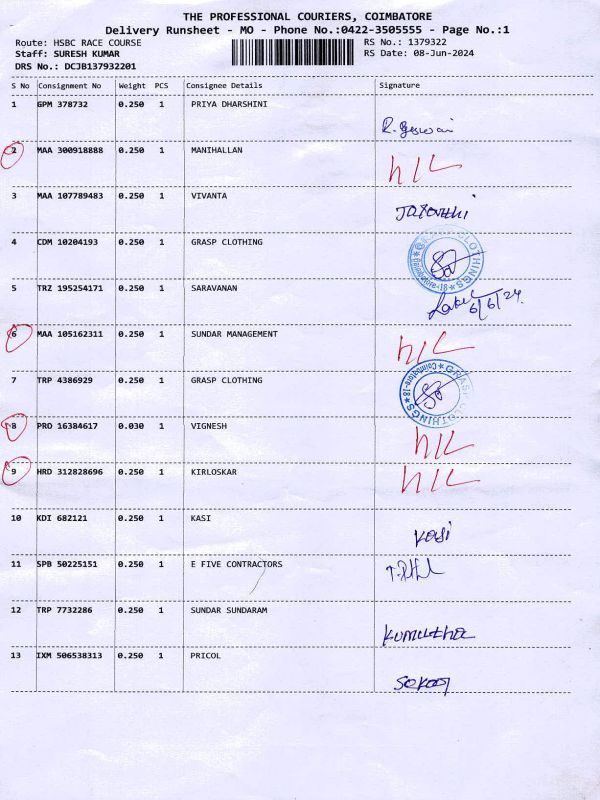 THE PROFESSIONAL COURIERS, COIMBATORE
Delivery Runsheet - MO - Phone No.:0422-3505555 - Page No.:1
Route: HSBC RACE COURSE RS No.: 1379322
Staff: SURESH KUMAR RS Date: 08-Jun-2024
DRS No.: DCJB137932201
S No Consignment No Weight PCS Consignee Details Signature
1 GPM 378732 0.250 1 PRIYA DHARSHINI
2 MAA 300918888 0.250 1 MANIHALLAN
N/L
3 MAA 107789483 0.250 1 VIVANTA
4 CDM 10204193 0.250 1 GRASP CLOTHING
GRASP CLOTHINGS Coimbatore-18
5 TRZ 195254171 0.250 1 SARAVANAN
6/6/24
6 MAA 105162311 0.250 1 SUNDAR MANAGEMENT
N/L
7 TRP 4386929 0.250 1 GRASP CLOTHING
GRASP CLOTHINGS Coimbatore-18
8 PRO 16384617 0.030 1 VIGNESH
N/L
9 HRD 312828696 0.250 1 KIRLOSKAR
N/L
10 KDI 682121 0.250 1 KASI
Kasi
11 SPB 50225151 0.250 1 E FIVE CONTRACTORS
12 TRP 7732286 0.250 1 SUNDAR SUNDARAM
13 IXM 506538313 0.250 1 PRICOL